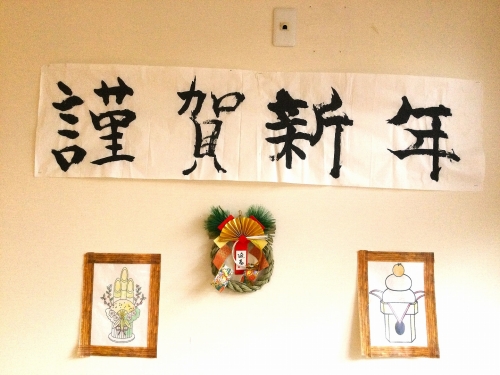 謹賀新年
迎春